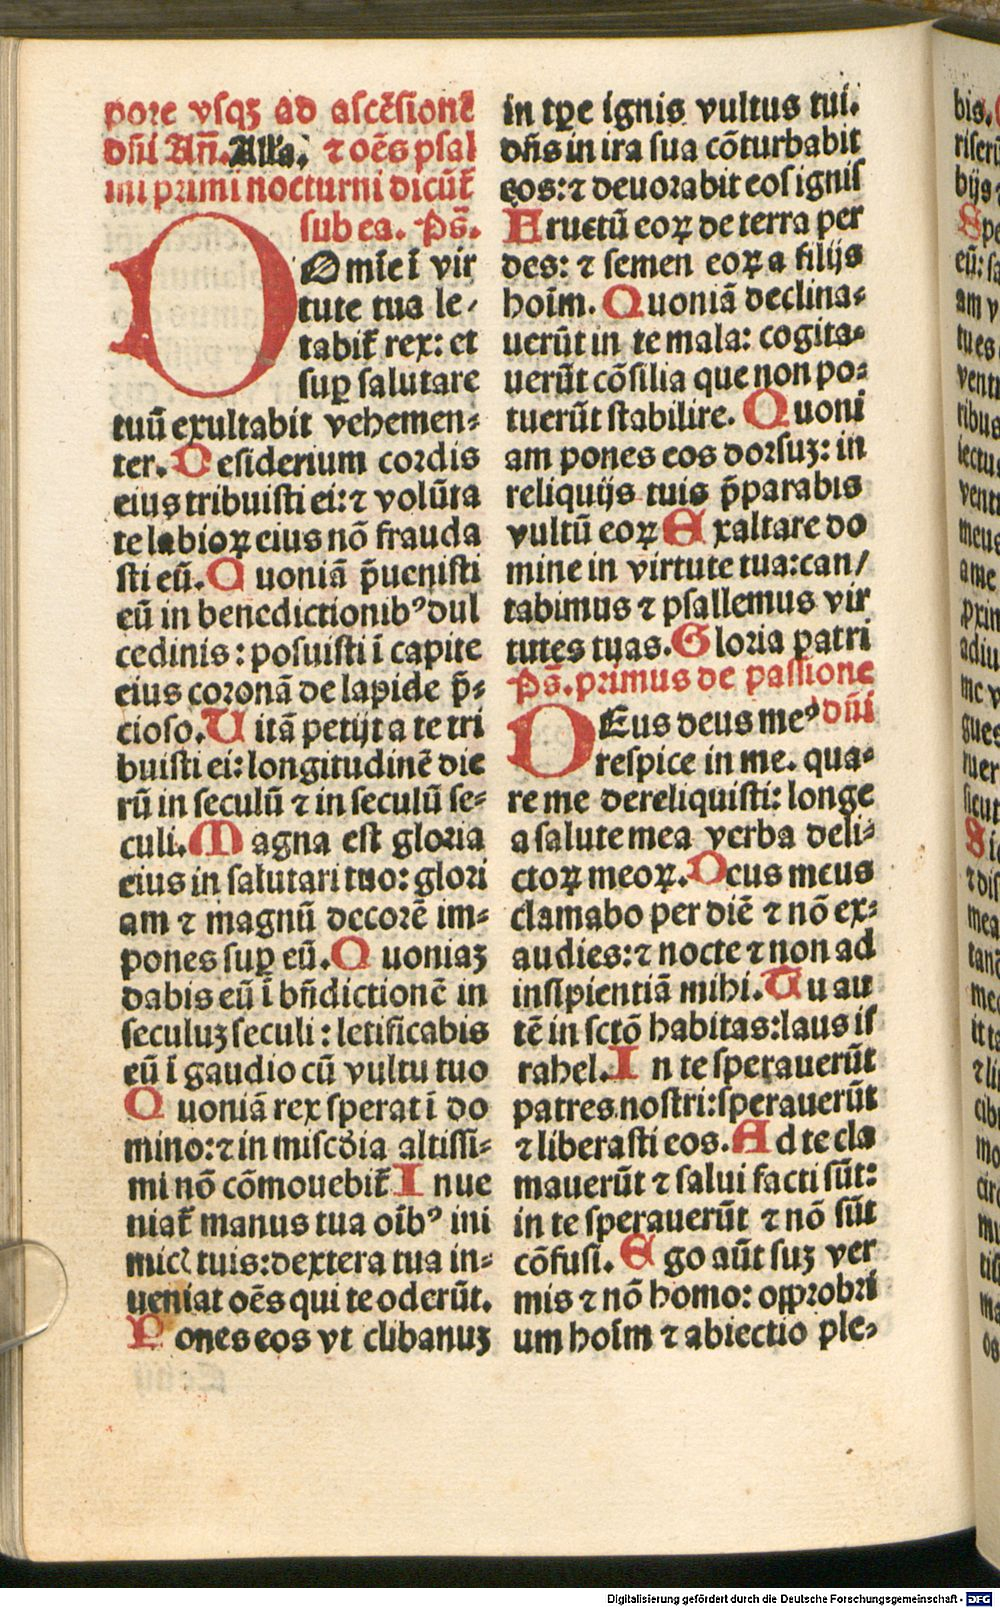 pore vsqꝫ ad ascēsionē
dn̄i An̄. Alla. ⁊ oēs psal
mi primi nocturni dicūt᷑
sub ea. Ps̄.
DOmīe ī vir
tute tua le-
tabit᷑ rex: et
suꝑ salutare
tuū exultabit vehemen-
ter. Desiderium cordis
eius tribuisti ei: ⁊ volūta
te labioꝝ eius nō frauda
sti eū. Quoniā p̄uenisti
eū in benedictionibꝰ dul
cedinis: posuisti ī capite
eius coronā de lapide p̄-
cioso. Uitā petijt a te tri
buisti ei: longitudinē die
rū in seculū ⁊ in seculū se-
culi. Magna est gloria
eius in salutari tuo: glori
am ⁊ magnū decorē im-
pones suꝑ eū. Quoniaꝫ
dabis eū ī bn̄dictionē in
seculuꝫ seculi: letificabis
eū ī gaudio cū vultu tuo
Quoniā rex sperat ī do
mino: ⁊ in mīscd̄ia altissi-
mi nō cōmouebit᷑ Inue
niat᷑ manus tua oīb⁹ ini
micꝭ tuis: dextera tua in-
ueniat oēs qui te oderūt.
Pones eos vt clibanuꝫ
in tꝑe ignis vultus tui.
dn̄s in ira sua cōturbabit
eos: ⁊ deuorabit eos ignis
Fructū eoꝝ de terra per
des: ⁊ semen eoꝝ a filijs
hoīm. Quoniā declina-
uerūt in te mala: cogita-
uerūt cōsilia que non po-
tuerūt stabilire. Quoni
am pones eos dorsuꝫ: in
reliquijs tuis p̄parabis
vultū eoꝝ Exaltare do
mine in virtute tua: can/
tabimus ⁊ psallemus vir
tutes tuas. Gloria patri
Ps̄. primus de passione
dn̄i
DEus deus meꝰ
respice in me. qua-
re me dereliquisti: longe
a salute mea verba deli-
ctoꝝ meoꝝ. Deus meus
clamabo per diē ⁊ nō ex-
audies: ⁊ nocte ⁊ non ad
insipientiā mihi. Tu au
tē in sctō habitas: laus is
rahel. In te sperauerūt
patres nostri: sperauerūt
⁊ liberasti eos. Ad te cla
mauerūt ⁊ salui facti sūt:
in te sperauerūt ⁊ nō sūt
cōfusi. Ego aūt suꝫ ver
mis ⁊ nō homo: opprobri
um hoīm ⁊ abiectio ple-
Digitalisierung gefördert durch die Deutsche Forschungsgemeinschaft - DFG